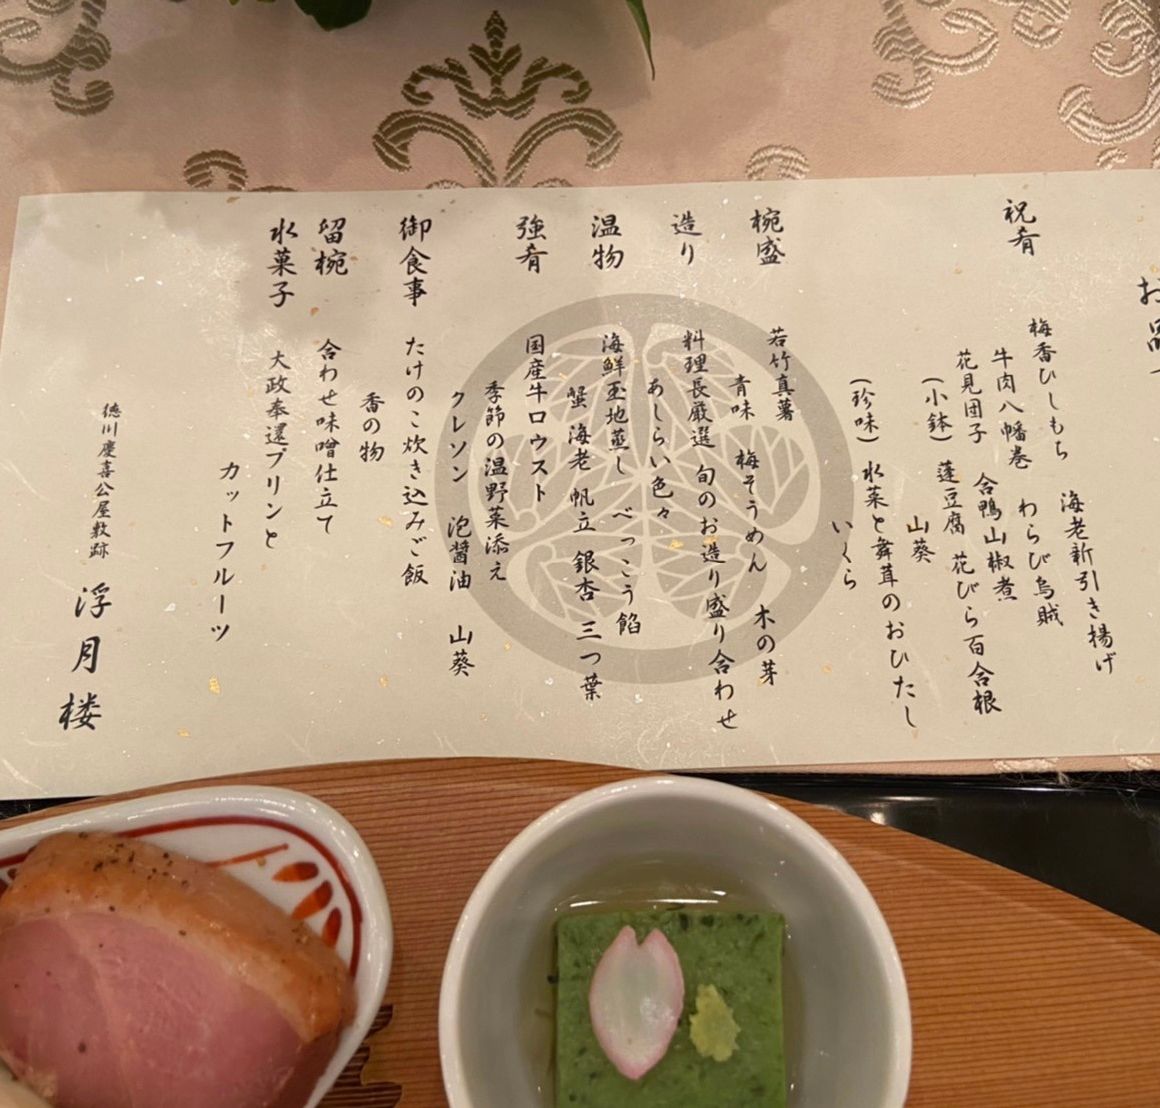 お品
祝肴
梅香ひしもち 海老新引き揚げ
牛肉八幡巻 わらび烏賊
花見団子 合鴨山椒煮
(小鉢) 蓬豆腐 花びら百合根
山葵
(珍味) 水菜と舞茸のおひたし
いくら
椀盛 若竹真薯
青味 梅そうめん 木の芽
造り 料理長厳選 旬のお造り盛り合わせ
あしらい色々
温物 海鮮玉地蒸し べっこう餡
蟹 海老 帆立 銀杏 三つ葉
強肴 国産牛ロウスト
季節の温野菜添え
クレソン 泡醤油 山葵
御食事 たけのこ炊き込みご飯
香の物
留椀 合わせ味噌仕立て
水菓子 大政奉還プリンと
カットフルーツ
徳川慶喜公屋敷跡 浮月楼